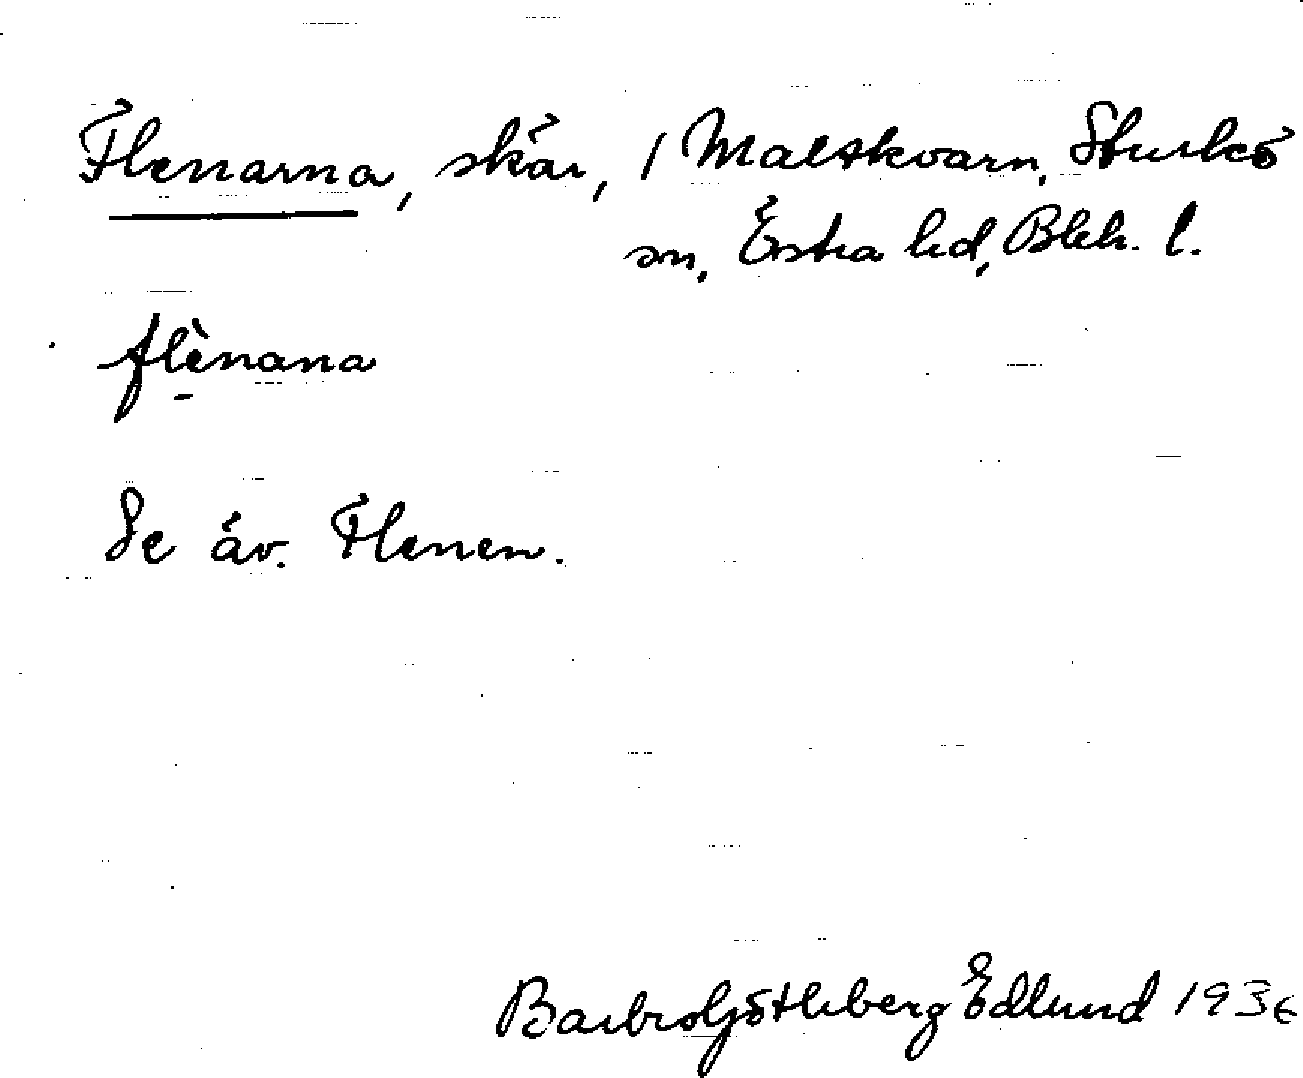 Flenarna, skär, / Maltkvarn, Sturkö
sn, Östra hd, Blek. l.
flènana
Se äv. Flenen.
Barbro Götleberg Edlund 1936